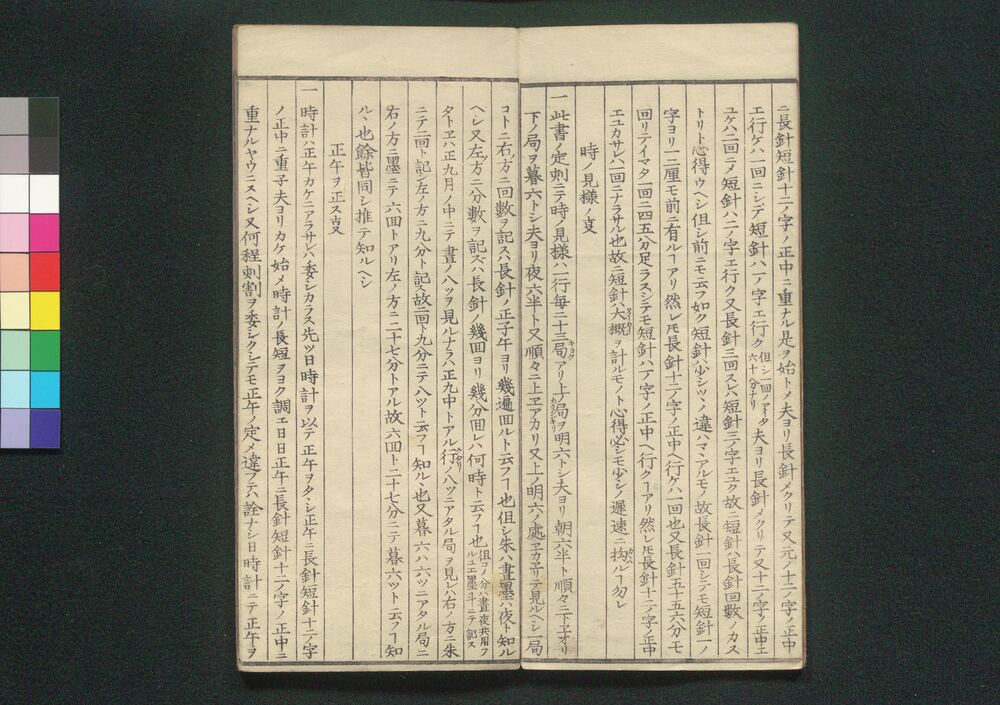 ニ長針短針十二ノ字ノ正中ニ重ナル是ヲ始トメ夫ヨリ長針メクリテ又元ノ十二ノ字ノ正中
エ行ケハ一回ニシテ短針ハ一ノ字エ行ク但シ一回ノアイダ六十分ナリ夫ヨリ長針メクリテ又十二ノ字ノ正中エ
ユケハ二回ニメ短針ハ二ノ字エ行ク又長針三回スレハ短針三ノ字エユク故ニ短針ハ長針回數ノカス
トリト心得ウヘシ但シ前ニモ云フ如ク短針ハ少シツヽノ違ハマヽアルモノ故長針一回シテモ短針一ノ
字ヨリ一二厘モ前ニ有ルヿアリ然レ𪜈長針十二ノ字ノ正中ヘ行ケハ一回也又長針五十五六分モ
回リテイマタ一回ニ四五分足ラスシテモ短針ハ一ノ字ノ正中ヘ行クヿアリ然レ𪜈長針十二ノ字ノ正中
エユカサレハ一回ニナラサル也故ニ短針ハ大概ヲ計ルモノト心得必シモ少シノ遲速ニ拘ルヿ勿レ
時ノ見様ノ叓
一此書ノ定刺ニテ時ノ見様ハ一行毎ニ十三局アリ上ノ局ヲ明六トシ夫ヨリ朝六半ト順々ニ下エオリ
下ノ局ヲ暮六トシ夫ヨリ夜六半ト又順々ニ上エアカリ又上ノ明六ノ處エカヱリテ見ルヘシ一局
コトニ右ノ方ニ回數ヲ記スハ長針ノ正子午ヨリ幾遍回ルト云フヿ也但シ朱ハ晝墨ハ夜ト知ル
ヘシ又左ノ方ニ分數ヲ記スハ長針ノ幾回ヨリ幾分回レハ何時ト云フヿ也但コノ分ハ晝夜共用フルユエ墨斗ニテ記ス
タトヱハ正九月ノ中ニテ晝ノ八ツヲ見ルナラハ正九中トアル行ノ八ツニアタル局ヲ見レハ右ノ方ニ朱
ニテ二回ト記シ左ノ方ニ九分ト記ス故二回ト九分ニテ八ツト云フヿ知ルヽ也又暮六ハ六ツニアタル局ニ
右ノ方ニ墨ニテ六回トアリ左ノ方ニ二十七分トアル故六回ト二十七分ニテ暮六ツト云フヿ知
ルヽ也餘皆同シ推テ知ルヘシ
正午ヲ正ス叓
一時計ハ正午カケニアラサレハ委シカラス先ツ日時計ヲ以テ正午ヲタヽシ正午ニ長針短針十二ノ字
ノ正中ニ重子夫ヨリカケ始メ時計ノ長短ヲヨク調エ日日正午ニ長針短針十二ノ字ノ正中ニ
重ナルヤウニスヘシ又何程刺割ヲ委シクシテモ正午ノ定メ違フテハ詮ナシ日時計ニテ正午ヲ